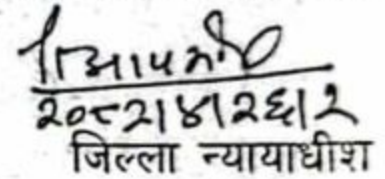 २०८२।४।२६।२
जिल्ला न्यायाधीश